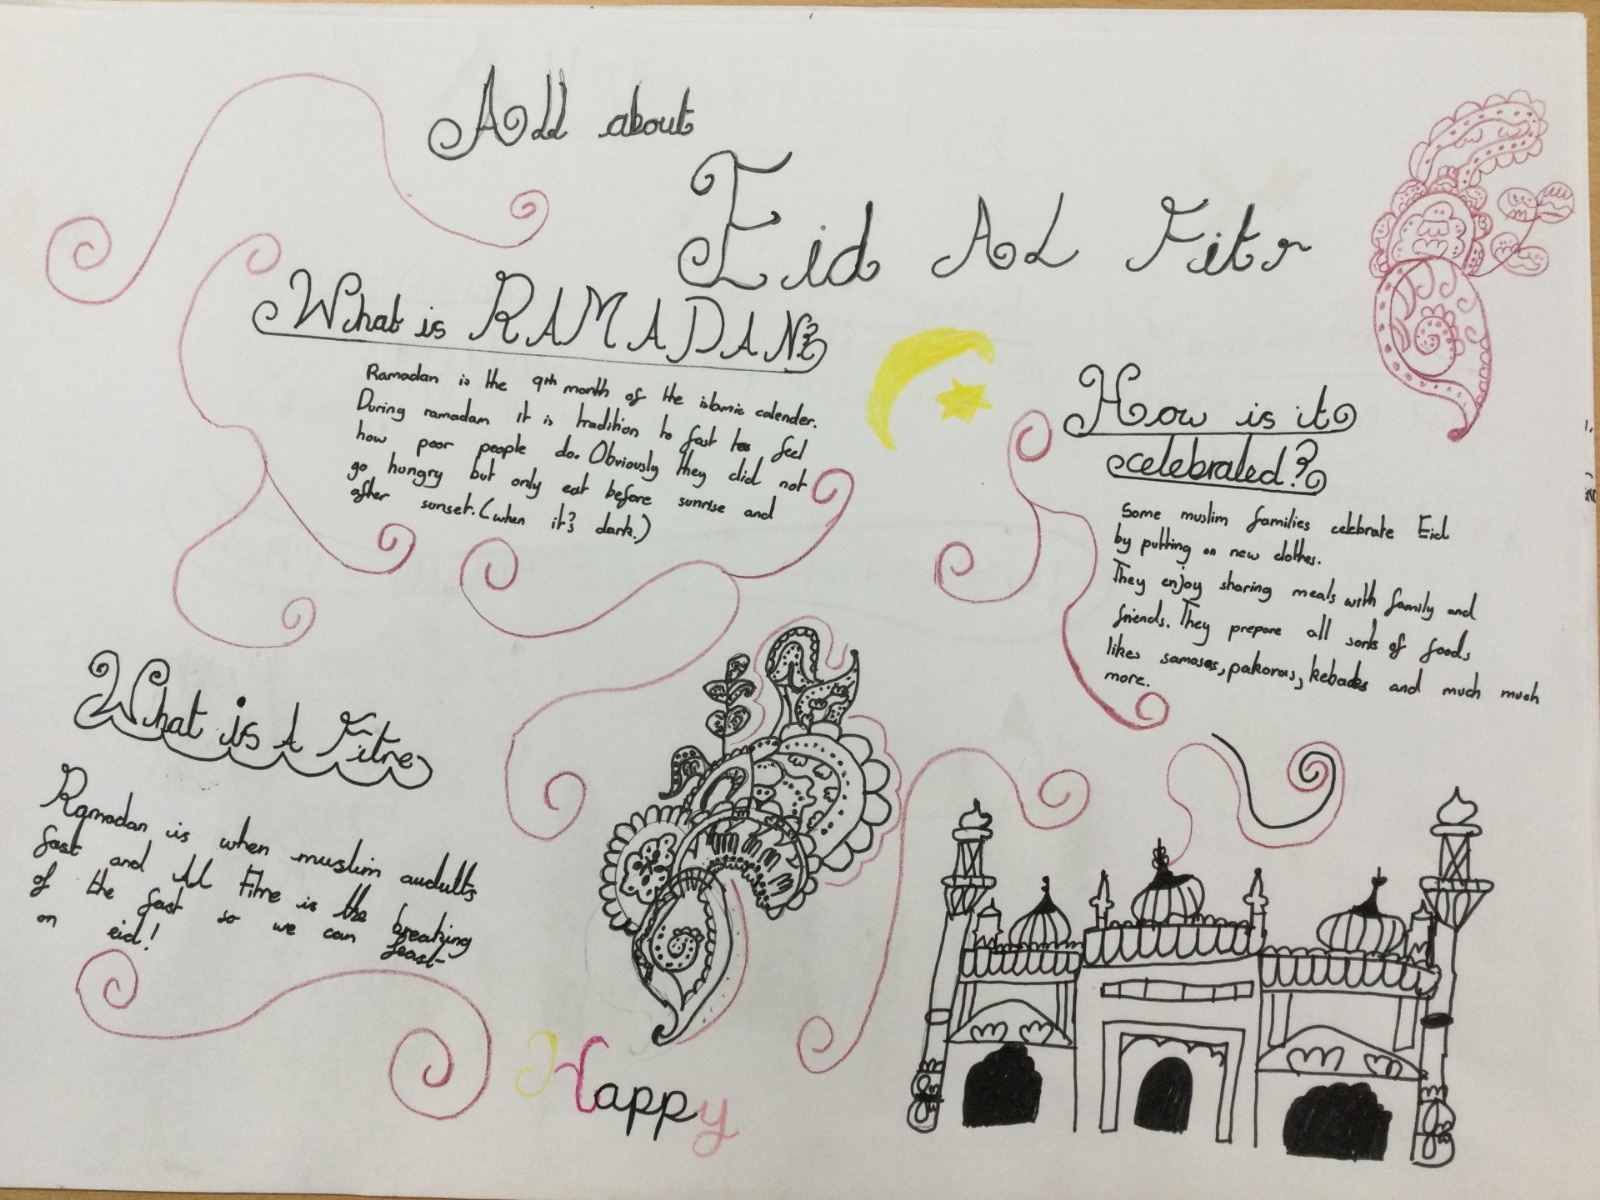 All about
Eid AL Fitr
What is RAMADAN?
Ramadan is the 9th month of the islamic calender.
During ramadam it is tradition to fast to feel
how poor people do. Obviously they did not
go hungry but only eat before sunrise and
after sunset. (when it's dark.)
How is it
celebrated?
Some muslim families celebrate Eid
by putting on new clothes.
They enjoy sharing meals with family and
friends. They prepare all sorts of foods
likes samosas, pakoras, kebabs and much much
more.
What is A Fitre
Ramadan is when muslim audults
fast and Al Fitre is the breaking
of the fast so we can feast
on eid!
Happy